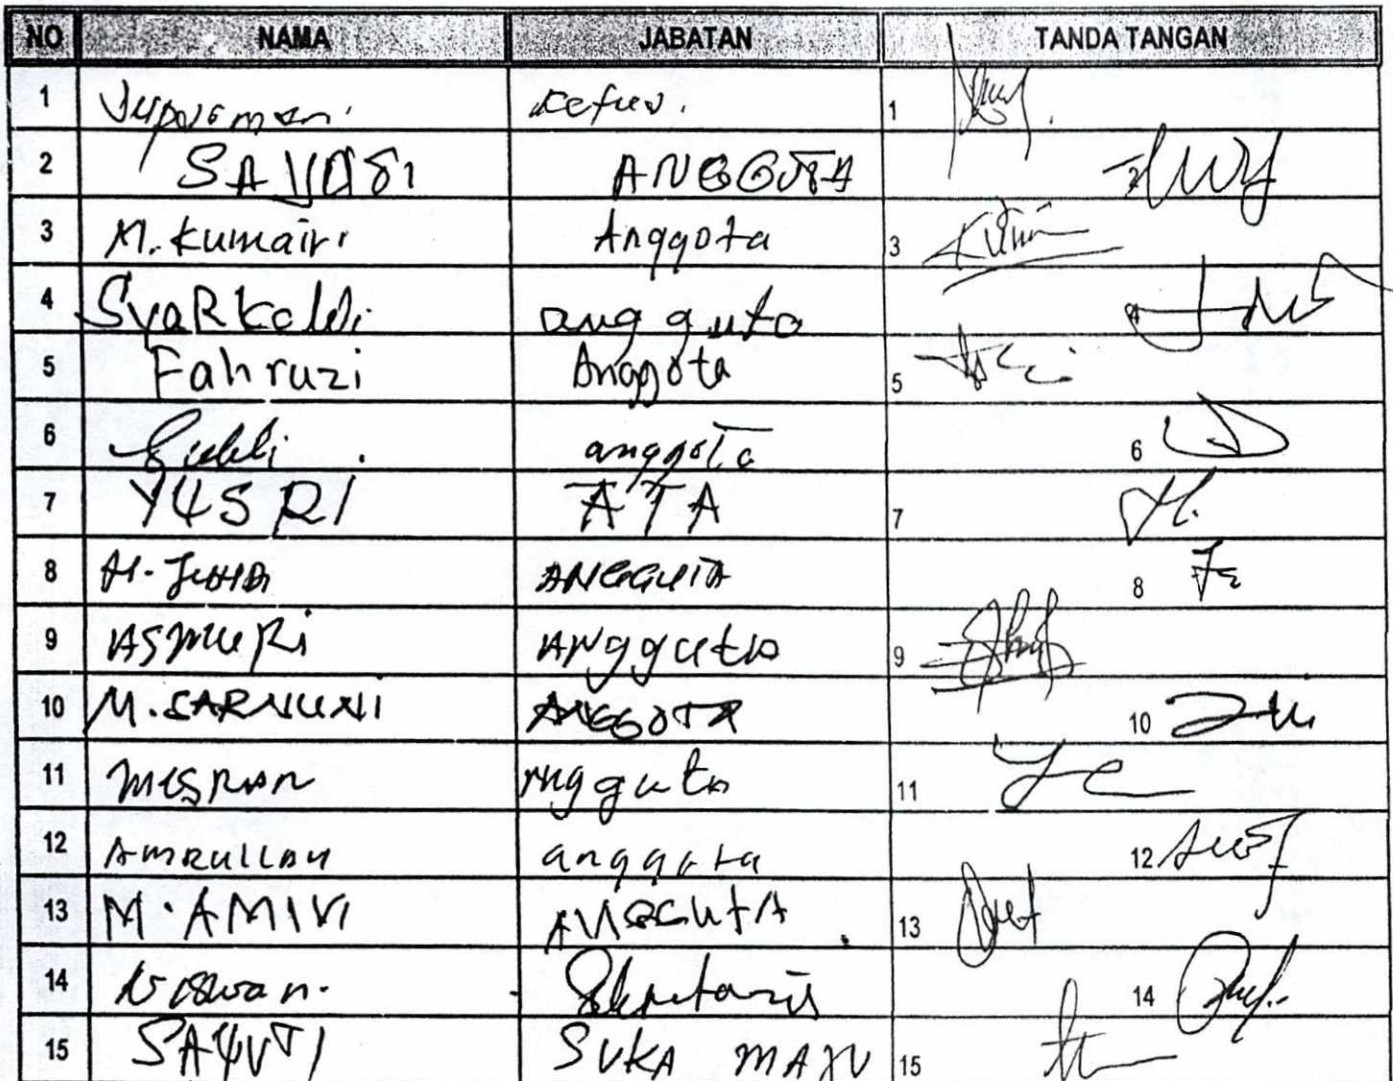 NO NAMA JABATAN TANDA TANGAN
1 1
2 ANGGOTA 2
3 M. Kumairi Anggota 3
4 angguta 4
5 Fahruzi Anggota 5
6 anggota 6
7 YUSRI ATA 7
8 ANGGUTA 8
9 ASMURi ANgguta 9
10 M. SARNUNI ANGGOTA 10
11 MESRAN ngguta 11
12 AMRULLAH anggota 12
13 M. AMINI ANGGUTA 13
14 Sekretaris 14
15 SAYUTI SUKA MAJU 15